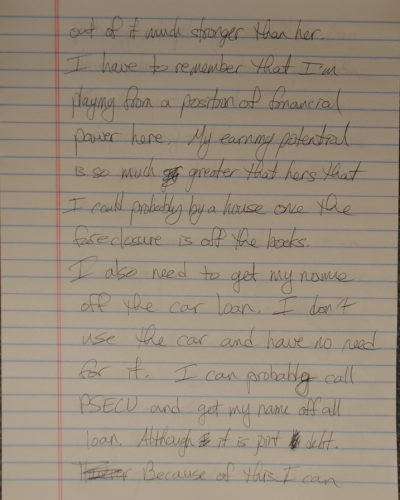 out of it much stronger than her.
I have to remember that I'm
playing from a position of financial
power here. My earning potential
is so much greater that hers that
I could probably by a house once the
foreclosure is off the books.
I also need to get my name
off the car loan. I don't
use the car and have no need
for it. I can probably call
PSECU and get my name off all
loan. Although it is joint debt.
Because of this I can